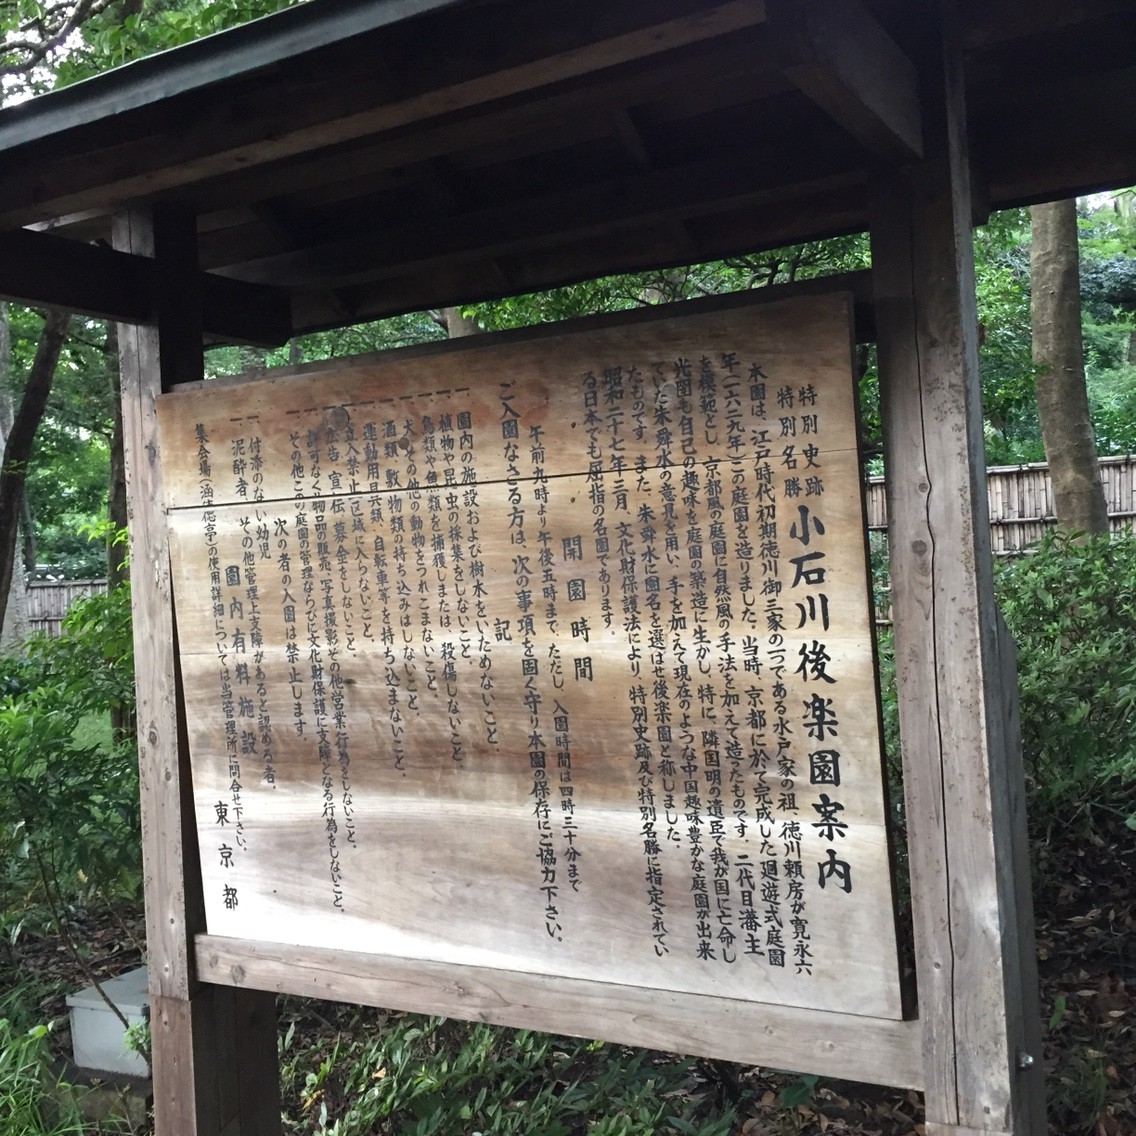 特別史跡
特別名勝
小石川後楽園案内
本園は、江戸時代初期徳川御三家の一つである水戸家の祖、徳川頼房が寛永六
年(一六二九年)この庭園を造りました。当時、京都に於て完成した廻遊式庭園
を模範とし、京都風の庭園に自然風の手法を加えて造ったものです。二代目藩主
光圀も自己の趣味を庭園の築造に生かし、特に、隣国明の遺臣で我が国に亡命し
ていた朱舜水の意見を用い、手を加えて現在のような中国趣味豊かな庭園が出来
たものです。また、朱舜水に園名を選ばせ後楽園と称しました。
昭和二十七年三月、文化財保護法により、特別史跡及び特別名勝に指定されてい
る日本でも屈指の名園であります。
開園時間
午前九時より午後五時まで、ただし、入園時間は四時三十分まで
ご入園なさる方は、次の事項を固く守り本園の保存にご協力下さい。
記
一 園内の施設および樹木をいためないこと、
一 植物や昆虫の採集をしないこと。
一 鳥類や魚類を捕獲しまたは、殺傷しないこと
一 犬、その他の動物をつれこまないこと
一 酒類、敷物類の持ち込みはしないこと、
一 運動用具類、自転車等を持ち込まないこと、
一 立入禁止区域に入らないこと、
一 広告、宣伝、募金をしないこと、
一 許可なく物品の販売、写真撮影その他営業行為をしないこと、
一 その他この庭園の管理ならびに文化財保護に支障となる行為をしないこと、
次の者の入園は禁止します。
一 付添のない幼児
一 泥酔者、その他管理上支障があると認める者。
園内有料施設
集会場(涵徳亭)の使用詳細については当管理所に問合せ下さい。
東京都